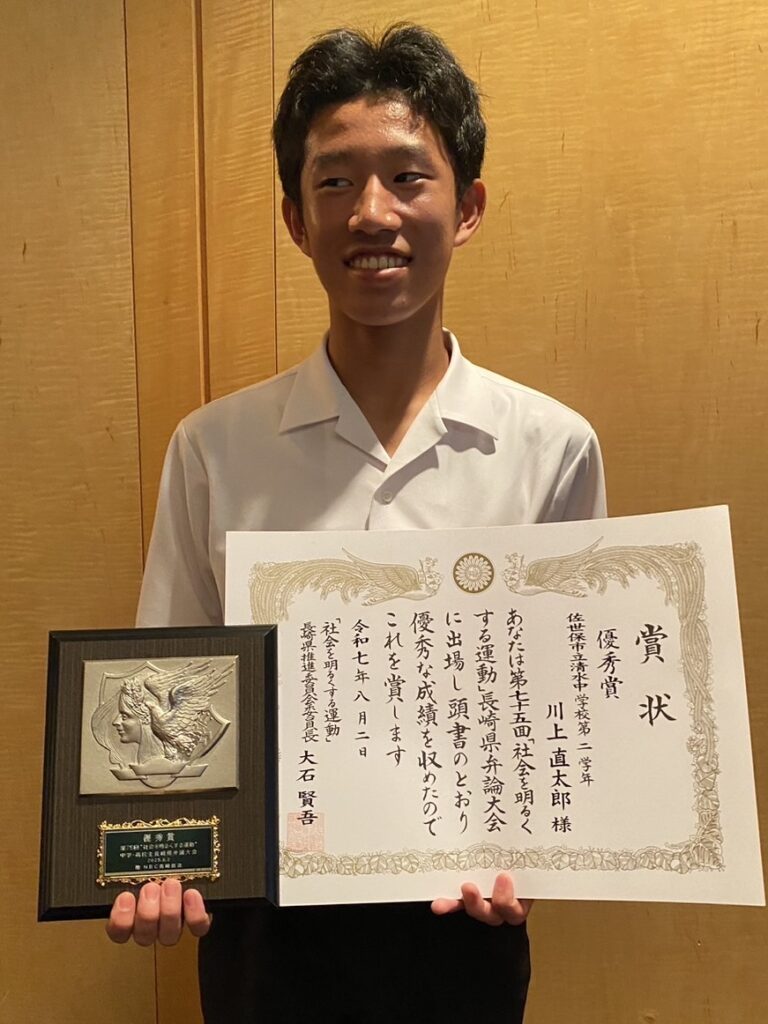 賞状
優秀賞
佐世保市立清水中学校第二学年
川上直太郎 様
あなたは第七十五回「社会を明るく
する運動」長崎県弁論大会
に出場し頭書のとおり
優秀な成績を収めたので
これを賞します
令和七年八月二日
「社会を明るくする運動」
長崎県推進委員会委員長 大石賢吾
優秀賞
第75回"社会を明るくする運動"
中学・高校生長崎県弁論大会
2025.8.2
NBC長崎放送